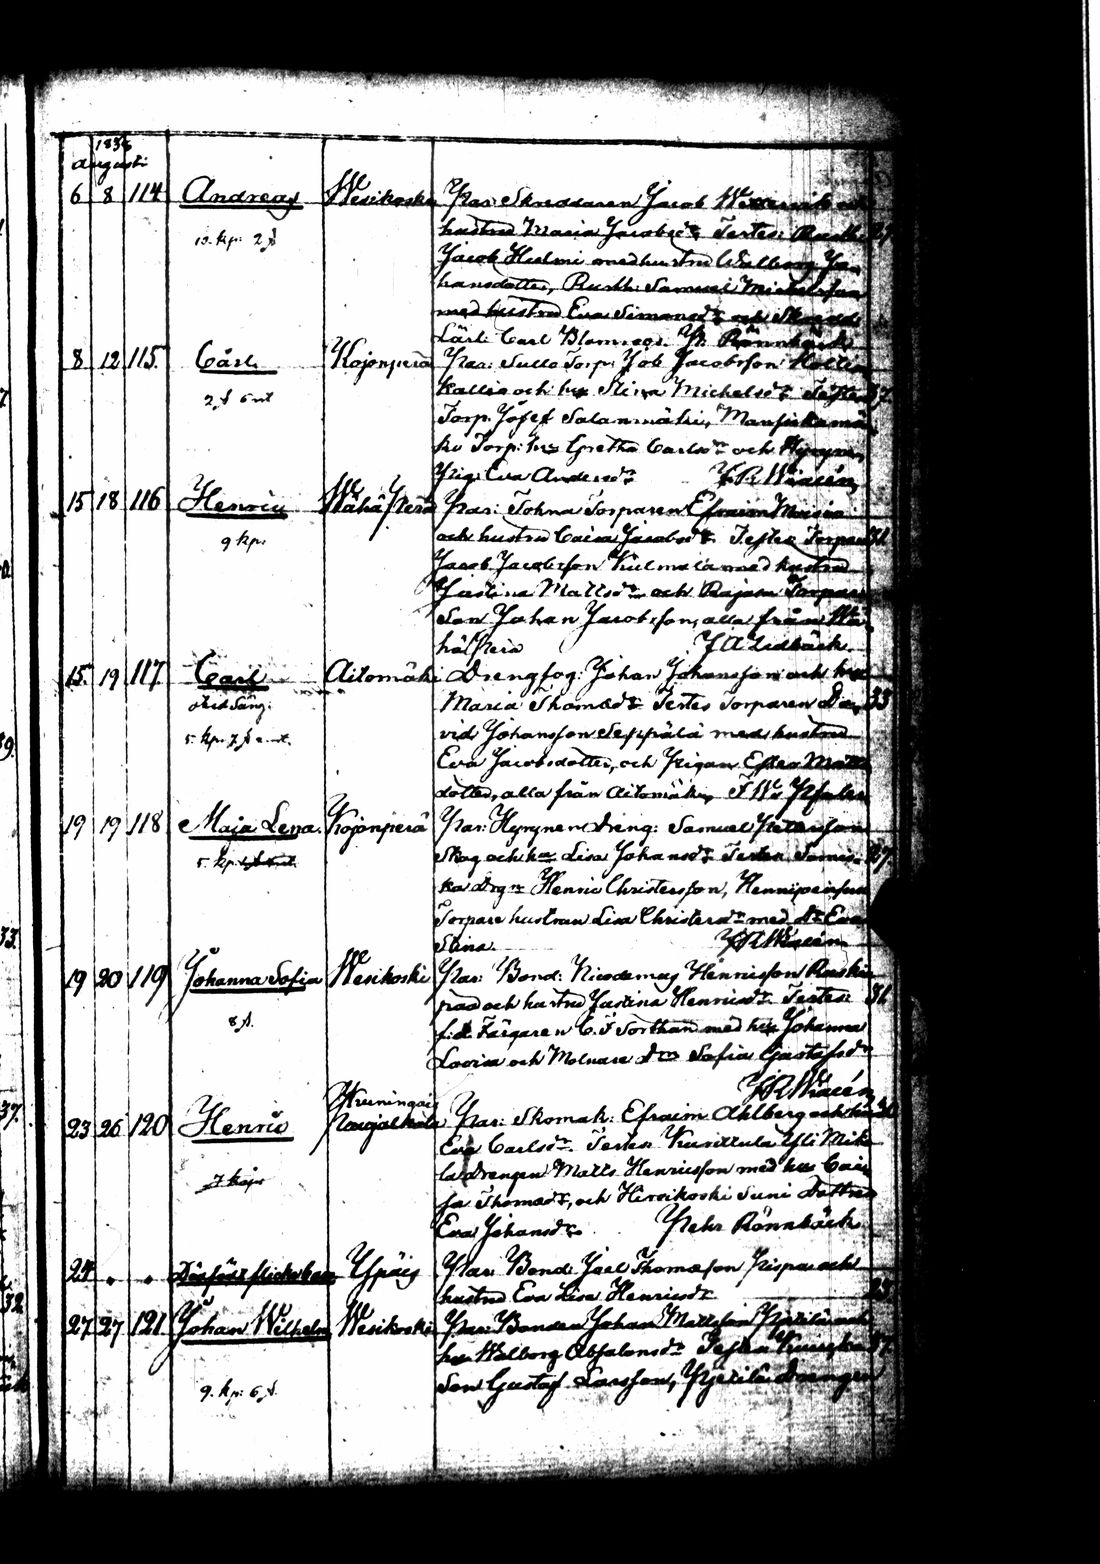 1836
augusti
6 8 114 Andreas Wesikoski Par: Skreddaren Jacob
13. kp. 2 f
hustru Maria Jacobsdr Testes: Rusth.
Jacob Hulmi med hustru Walborg Jo-
hansdotter, Rusth: Samuel Michelsson
med hustru Eva Simonsdr och Skredd
Lärl. Carl Blomros. P. Rönnbäck
8 12 115. Carl Kojonperä Par: Sullo Torp: Job Jacobsson
2 f 6 nt
kallio och hu Stina Michelsdr Testes 37.
Torp. Josef Salanmäki, Mansikamä
ki Torp: hu Gretha Carlsdr och Hyryne
Pig: Eva Andersdr F. R. Winién
15 18 116 Henric Wähä Perä Par: Torparen Efraim
9 kp.
och hustru Caisa Jacobsdr. Testes Torparen 31
Jacob Jacobsson Kulmala med hustru
Justina Mattsdr och Rajam Torpare
Son Johan Jacobsson, alla från Wä
hä Perä J A Lidbäck
15. 19 117. Carl Aitomäki Drengfog: Johan Johansson och hu
oäkta Säng:
Maria Thomasdr Testes Torparen Da- 33
5. kp. 7 f
vid Johansson Seppälä med hustru
Eva Jacobsdotter, och Pigan Ester Matts
dotter, alla från Aitomäki, F. W.
19 19 118 Maja Lena. Kojonperä Par: Hyrynen Dreng: Samuel Pettersson
5. kp.
Skog och hu Lisa Johansdr Testes 27.
ka Drgn Henric Christersson,
Torpare hustrun Lisa Christersdr med Dr Eva
Stina. F R Winién
19 20 119 Johanna Sofia Wesikoski Par: Bond: Nicodemus Henricsson Ruski
8 f.
pää och hustru Justina Henricsdr Testes: 31
f.d. Färgaren C. F. Forthan med hu Johanna
Lovisa och Molnare Drn Sofia Gustafsdr
F R Winién
23 26 120 Henric Par: Skomak: Efraim Ahlberg och hu
7 kap
Eva Carlsdr. Testes Kurittula Yli Mik
la drengen Matts Henricsson med hu Cai
sa Thomasdr, och Hirsikoski Suni Dottren
Eva Johansdr Pehr Rönnbäck
24 " " Dödfödt flickebarn Ypäis Par: Bond Joel Thomasson och
hustru Eva Lisa Henricsdr
27 27 121 Johan Wilhelm Wesikoski Par: Bonden Johan Mattsson och
9. kp: 6 f.
hu Walborg Absalonsdr Testes 37.
Son Gustaf Larsson, Drengen